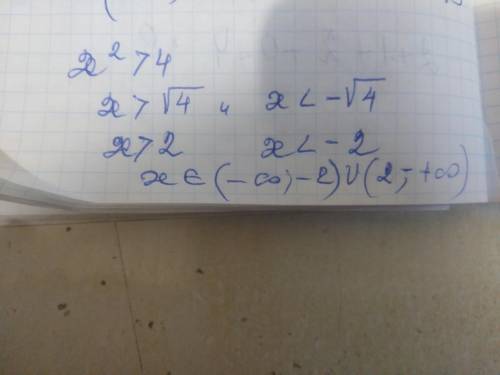 x² > 4
x > √4 и x < -√4
x > 2 x < -2
x ∈ (-∞; -2) ∪ (2; +∞)